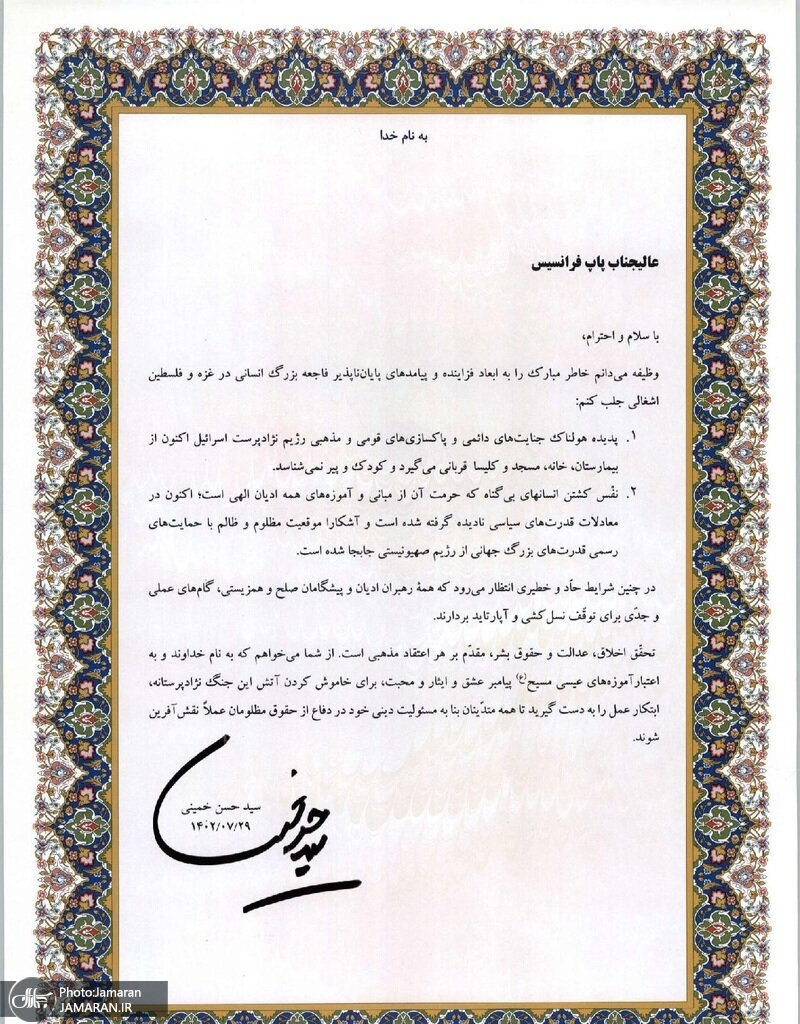 به نام خدا
عالیجناب پاپ فرانسیس
با سلام و احترام،
وظیفه می‌دانم خاطر مبارک را به ابعاد فزاینده و پیامدهای پایان‌ناپذیر فاجعه بزرگ انسانی در غزه و فلسطین
اشغالی جلب کنم:
۱. پدیده هولناک جنایت‌های دائمی و پاکسازی‌های قومی و مذهبی رژیم نژادپرست اسرائیل اکنون از
بیمارستان، خانه، مسجد و کلیسا قربانی می‌گیرد و کودک و پیر نمی‌شناسد.
۲. نفْس کشتن انسانهای بی‌گناه که حرمت آن از مبانی و آموزه‌های همه ادیان الهی است؛ اکنون در
معادلات قدرت‌های سیاسی نادیده گرفته شده است و آشکارا موقعیت مظلوم و ظالم با حمایت‌های
رسمی قدرت‌های بزرگ جهانی از رژیم صهیونیستی جابجا شده است.
در چنین شرایط حادّ و خطیری انتظار می‌رود که همهٔ رهبران ادیان و پیشگامان صلح و همزیستی، گام‌های عملی
و جدّی برای توقّف نسل‌کشی و آپارتاید بردارند.
تحقّق اخلاق، عدالت و حقوق بشر، مقدّم بر هر اعتقاد مذهبی است. از شما می‌خواهم که به نام خداوند و به
اعتبار آموزه‌های عیسی مسیح(ع) پیامبر عشق و ایثار و محبت، برای خاموش کردن آتش این جنگ نژادپرستانه،
ابتکار عمل را به دست گیرید تا همه متدّینان بنا به مسئولیت دینی خود در دفاع از حقوق مظلومان عملاً نقش‌آفرین
شوند.
سید حسن خمینی
۱۴۰۲/۰۷/۲۹
جماران
Photo:Jamaran
JAMARAN.IR